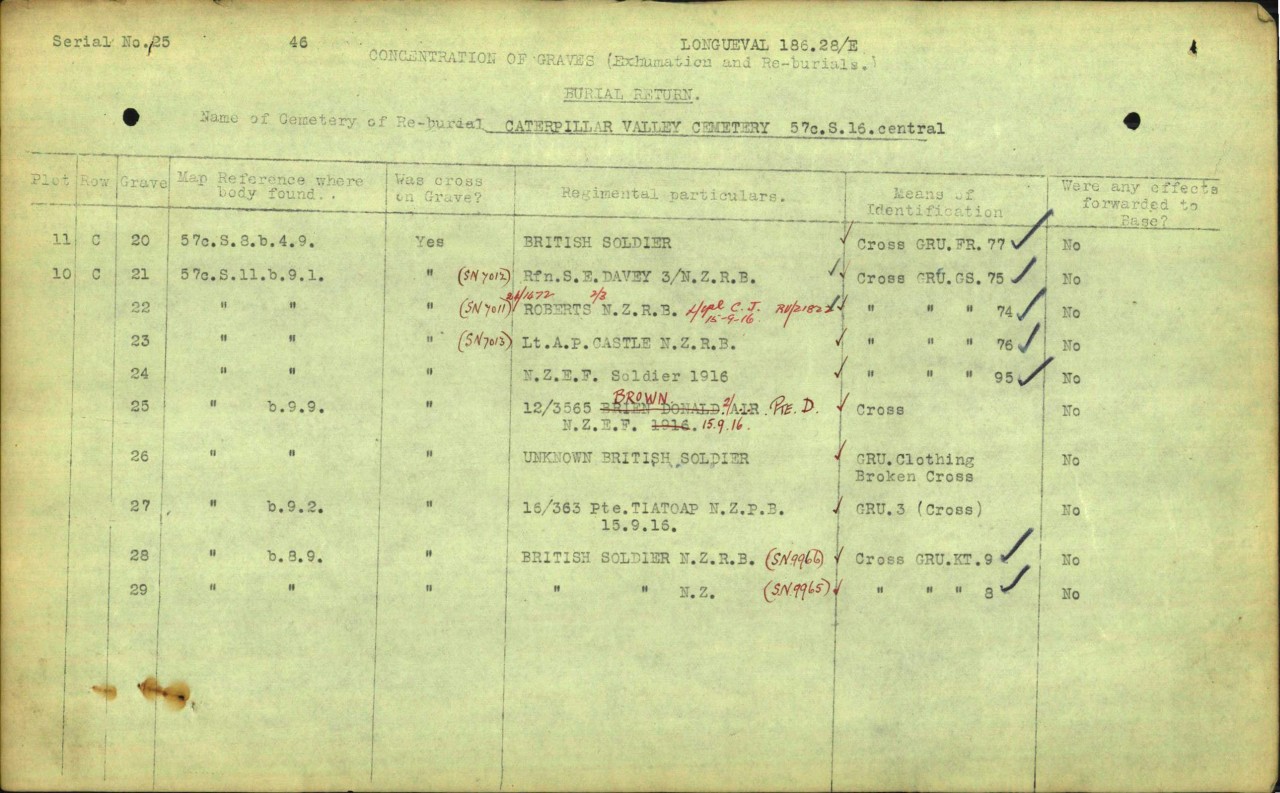 Serial No. 25 46 LONGUEVAL 186.28/E
CONCENTRATION OF GRAVES (Exhumation and Re-burials.)
BURIAL RETURN.
Name of Cemetery of Re-burial CATERPILLAR VALLEY CEMETERY 57c.S.16.central
Plot Row Grave Map Reference where body found.. Was cross on Grave? Regimental particulars. Means of Identification Were any effects forwarded to Base?
11 C 20 57c.S.8.b.4.9. Yes BRITISH SOLDIER Cross GRU.FR. 77 No
10 C 21 57c.S.11.b.9.1. " (SN 7012) Rfn.S.E.DAVEY 3/N.Z.R.B. Cross GRU.GS. 75 No
22 " " " (SN 7011) /1672 ROBERTS 2/3 N.Z.R.B. L/Cpl C.J. 15-9-16. " " " 74 No
23 " " " (SN 7013) Lt.A.P.CASTLE N.Z.R.B. " " " 76 No
24 " " " N.Z.E.F. Soldier 1916 " " " 95 No
BROWN
25 " b.9.9. " 12/3565 BRIEN DONALD. 2/A.I.R. PTE. D. Cross No
N.Z.E.F. 1916. 15.9.16.
26 " " " UNKNOWN BRITISH SOLDIER GRU.Clothing No
Broken Cross
27 " b.9.2. " 16/363 Pte.TIATOAP N.Z.P.B. GRU.3 (Cross) No
15.9.16.
28 " b.8.9. " BRITISH SOLDIER N.Z.R.B. (SN.9966) Cross GRU.KT. 9 No
29 " " " " " N.Z. (SN.9965) " " " 8 No